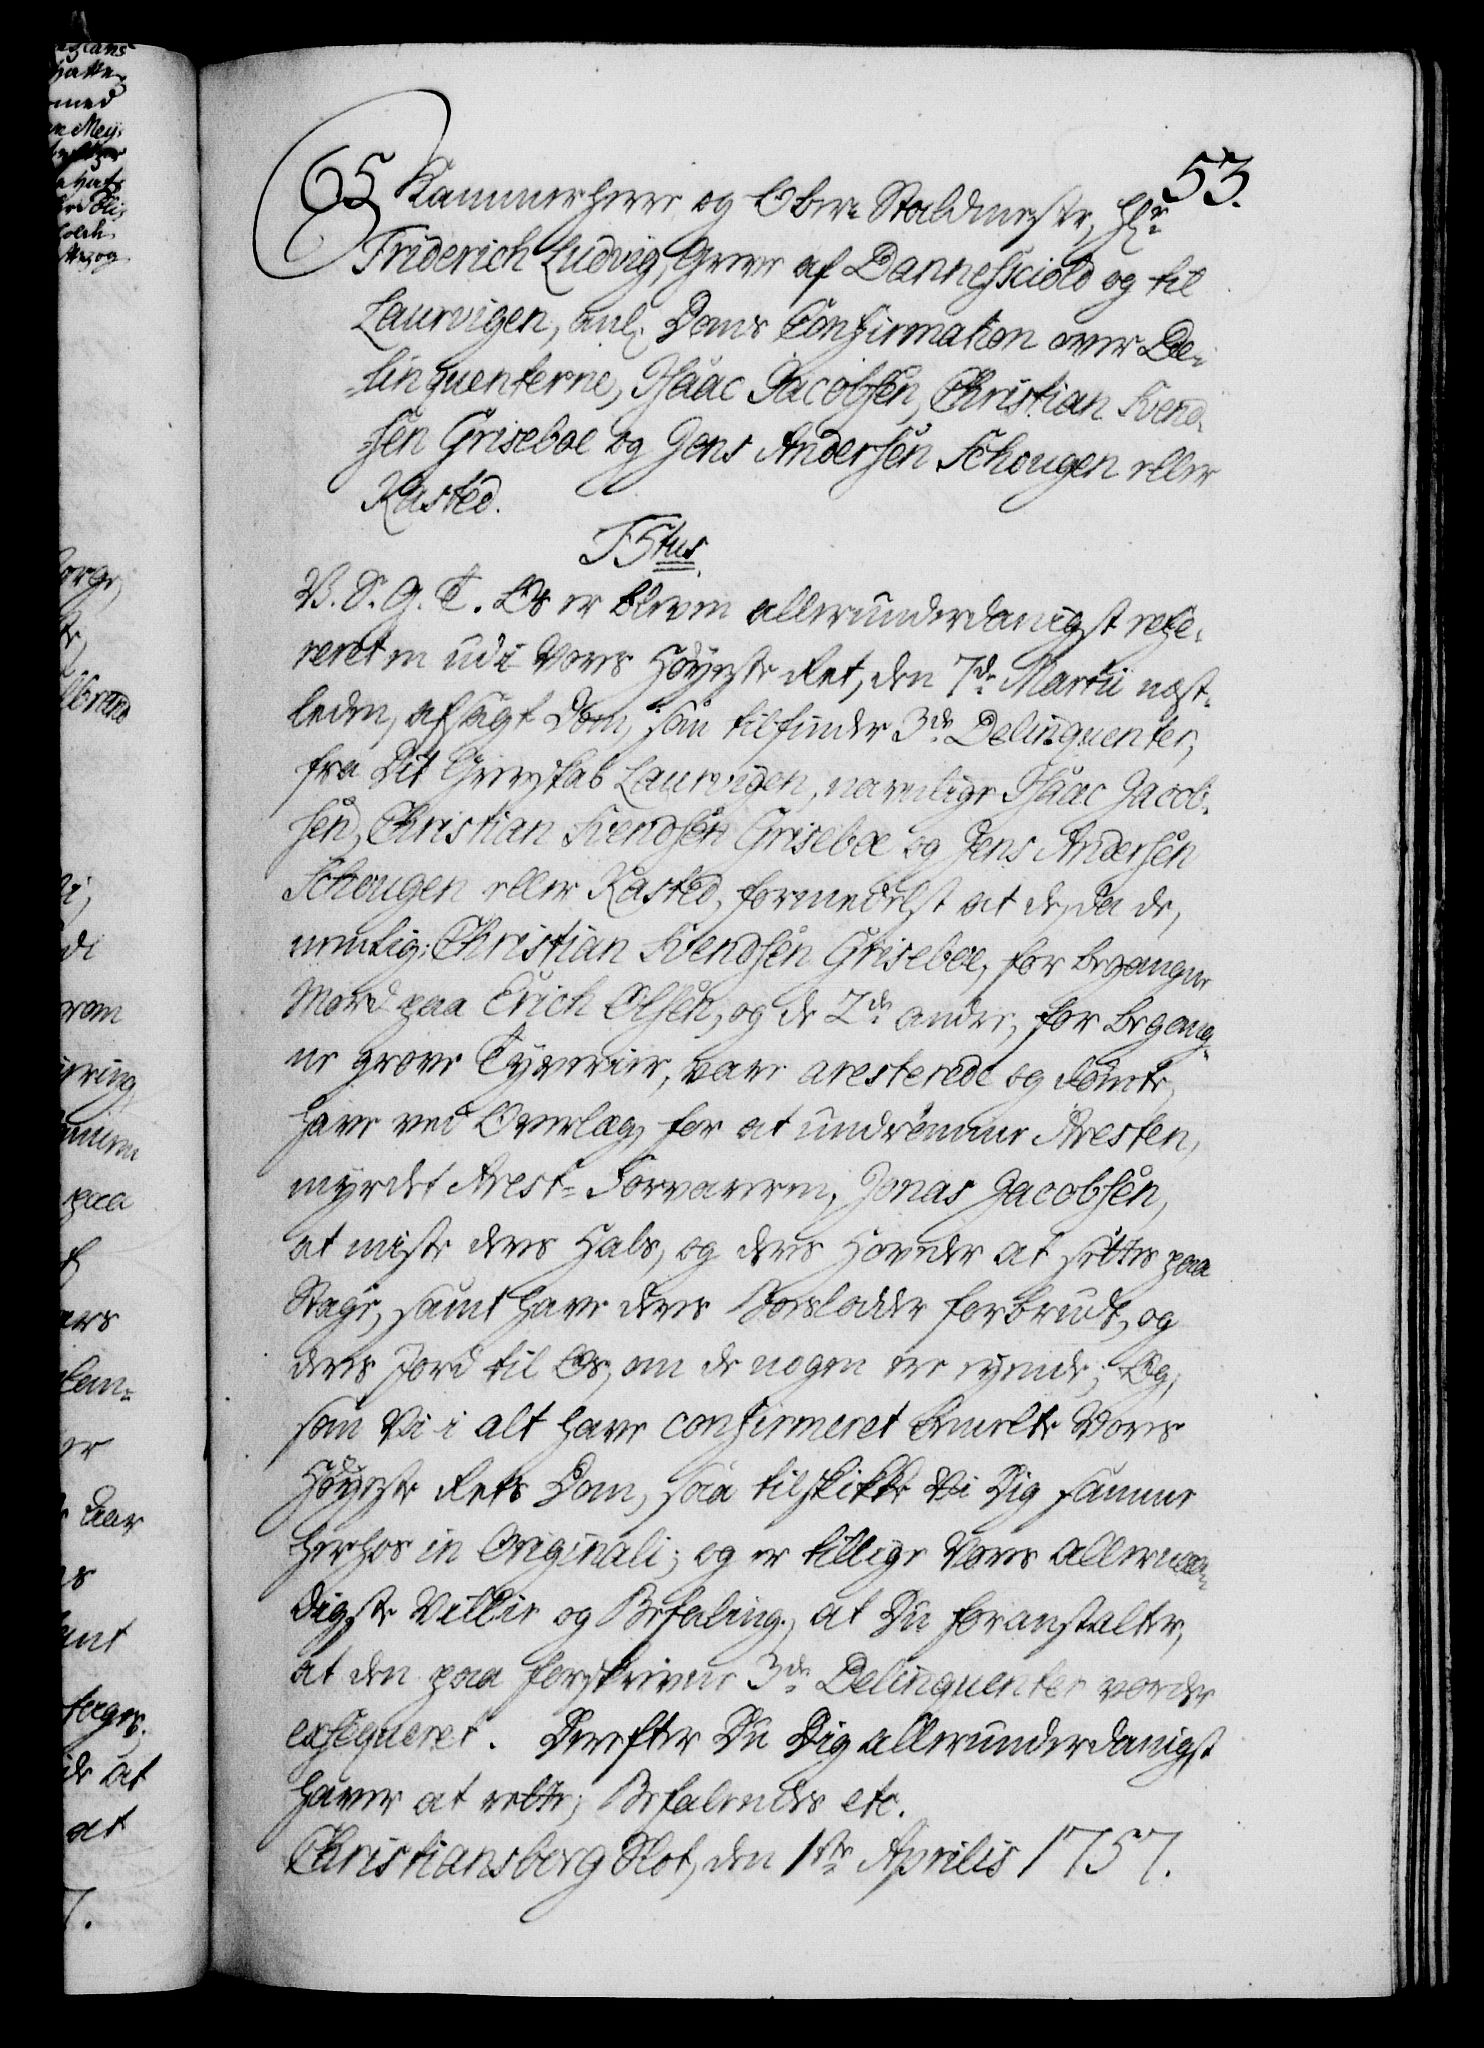 53.
65 Kammerherre og Ober-Staldmester, Hr.
Friderich Ludvig, Greve af Dannesskiold og til
Laurvigen, anl: Doms Confirmation over De-
linquenterne, Isaac Jacobsen, Christian Svend-
sen Griseboe og Jens Andersen Schougen eller
Rasted.
F5tus.
V. S. G. T. Os er bleven allerunderdanigst refe-
reret en udi Vores Høyeste Ret, den 7de Martii næst-
leden, afsagt Dom, som tilfinder 3de Delinquenter,
fra Dit Grevskab Laurvigen, navnlige Isaac Jacob-
sen, Christian Svendsen Griseboe og Jens Andersen
Schougen eller Rasted, formedelst at de, da de,
nemlig: Christian Svendsen Griseboe, for begangne
Mord paa Erich Olsen, og de 2de andre, for begang-
ne grove Tyverier, vare aresterede og dømte,
have ved Overlæg, for at undrømme Aresten,
myrdet Arest-Forvareren, Jonas Jacobsen,
at miste deres Hals, og deres Hoveder at settes paa
Stage, samt have deres Boeslodder forbrudt, og
deres Jord til Os, om de nogen ere eyende; Og,
som Vi i alt have confirmeret bemelte Vores
Høyeste Rets Dom, saa tilskikke Vi Dig samme
herhos in Originali; og er tillige Vores allernaa-
digste Villie og Befaling, at Du foranstalter,
at den paa forskrevne 3de Delinquenter vorder
exseqveret. Derefter Du Dig allerunderdanigst
haver at rette; Befalendes etc.
Christiansborg Slot, den 1ste Aprilis 1757.